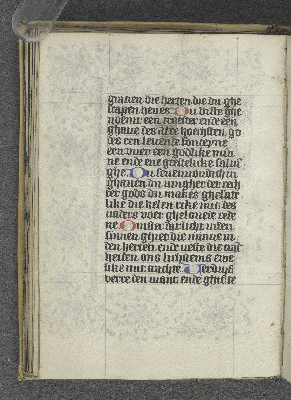 gracien die herten die du ghe
scapen heues Du biste ghe
noemt een troester ende een
ghaue des alre hoechsten go
des een leuende fonteyne
een vuer een godlike min
ne ende ene geestelike saluin
ghe Du seuenvoudich in
ghauen du vingher der rech
ter gods du makes ghelate
like die kelen rike mit des
vaders voer ghelouede rede
ne Ontsteec dat licht inten
sinnen ghiet die minne in
den herten ende veste die cranc
heiden ons lichaems ewe
like mit crachte Verdrijf
verre den viant ende ghif